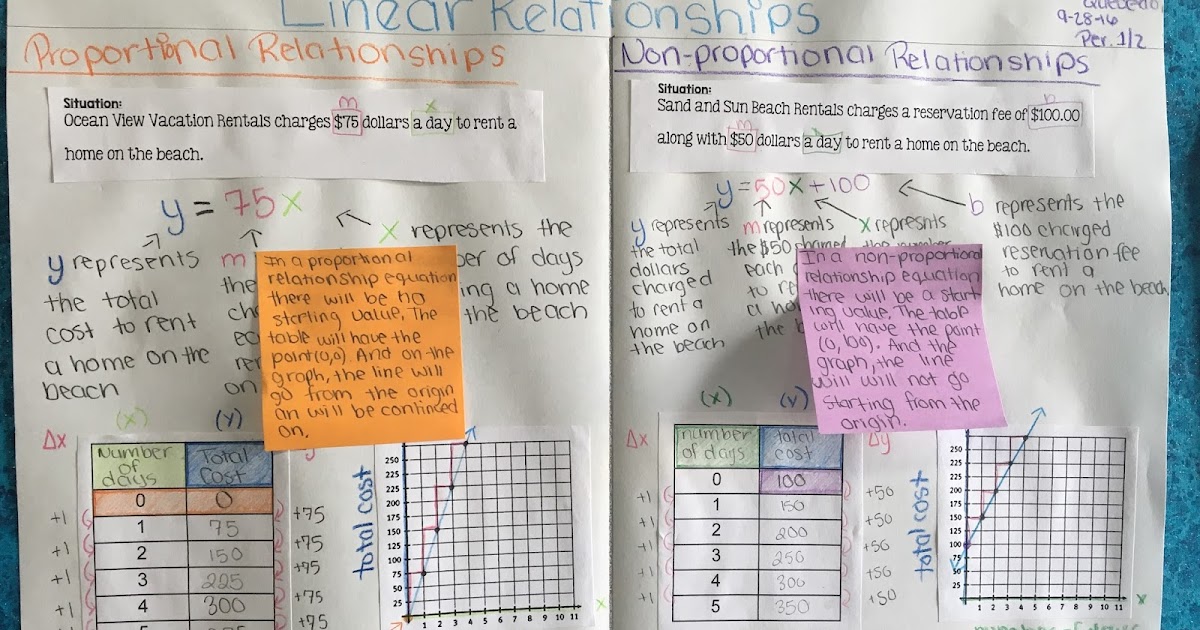 Linear Relationships
Quebedo
9-28-16
Per. 1/2
Proportional Relationships
Situation:
m x
Ocean View Vacation Rentals charges $75 dollars a day to rent a
home on the beach.
y = 75x
y represents
the total
cost to rent
a home on the
beach
m
the
x represents the
of days
a home
the beach
on
In a proportional
relationship equation
there will be no
starting value. The
table will have the
point (0,0). And on the
graph, the line will
go from the origin
an will be contined
on.
(x) (y)
Δx
Number of days Total Cost
0 0
1 75
2 150
3 225
4 300
5
+1
+1
+1
+1
+75
+75
+75
+75
+75
total cost
250
225
225
200
175
150
125
100
75
50
25
1 2 3 4 5 6 7 8 9 10 11
x
Non-proportional Relationships
Situation:
b
Sand and Sun Beach Rentals charges a reservation fee of $100.00
m
along with $50 dollars a day to rent a home on the beach.
y=50x+100
y represents
the total
dollars
charged
to rent a
home on
the beach
m represents
the $50 charged
each
to
a
the
x represnts
the number
b represents the
$100 charged
reservation fee
to rent a
home on the beach
In a non-proportional
relationship equation
there will be a start
ing value. The table
will have the point
(0,100). And the
graph, the line
will will not go
starting from the
origin.
(x) (y)
Δx
Δy
number of days total cost
0 100
1 150
2 200
3 250
4 300
5 350
+1
+1
+1
+1
+1
+50
+50
+50
+50
+50
total cost
250
225
200
175
150
125
100
75
50
25
1 2 3 4 5 6 7 8 9 10 11
x